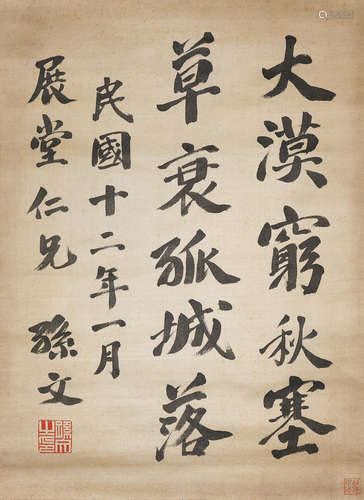 大漠窮秋塞
草衰孤城落
民國十二年一月
展堂仁兄 孫文